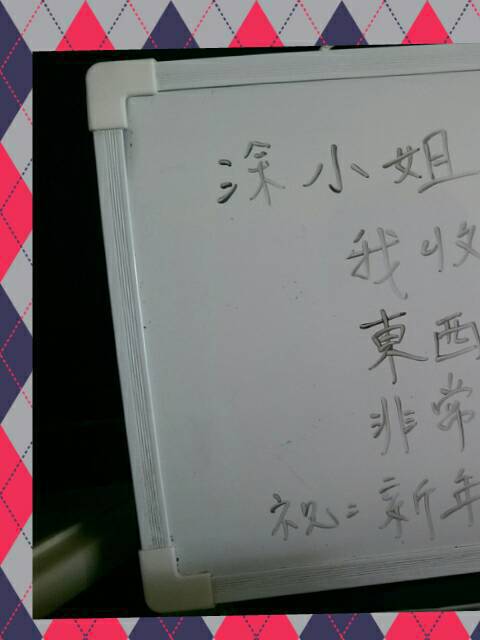 深小姐
我收
東西
非常
祝:新年